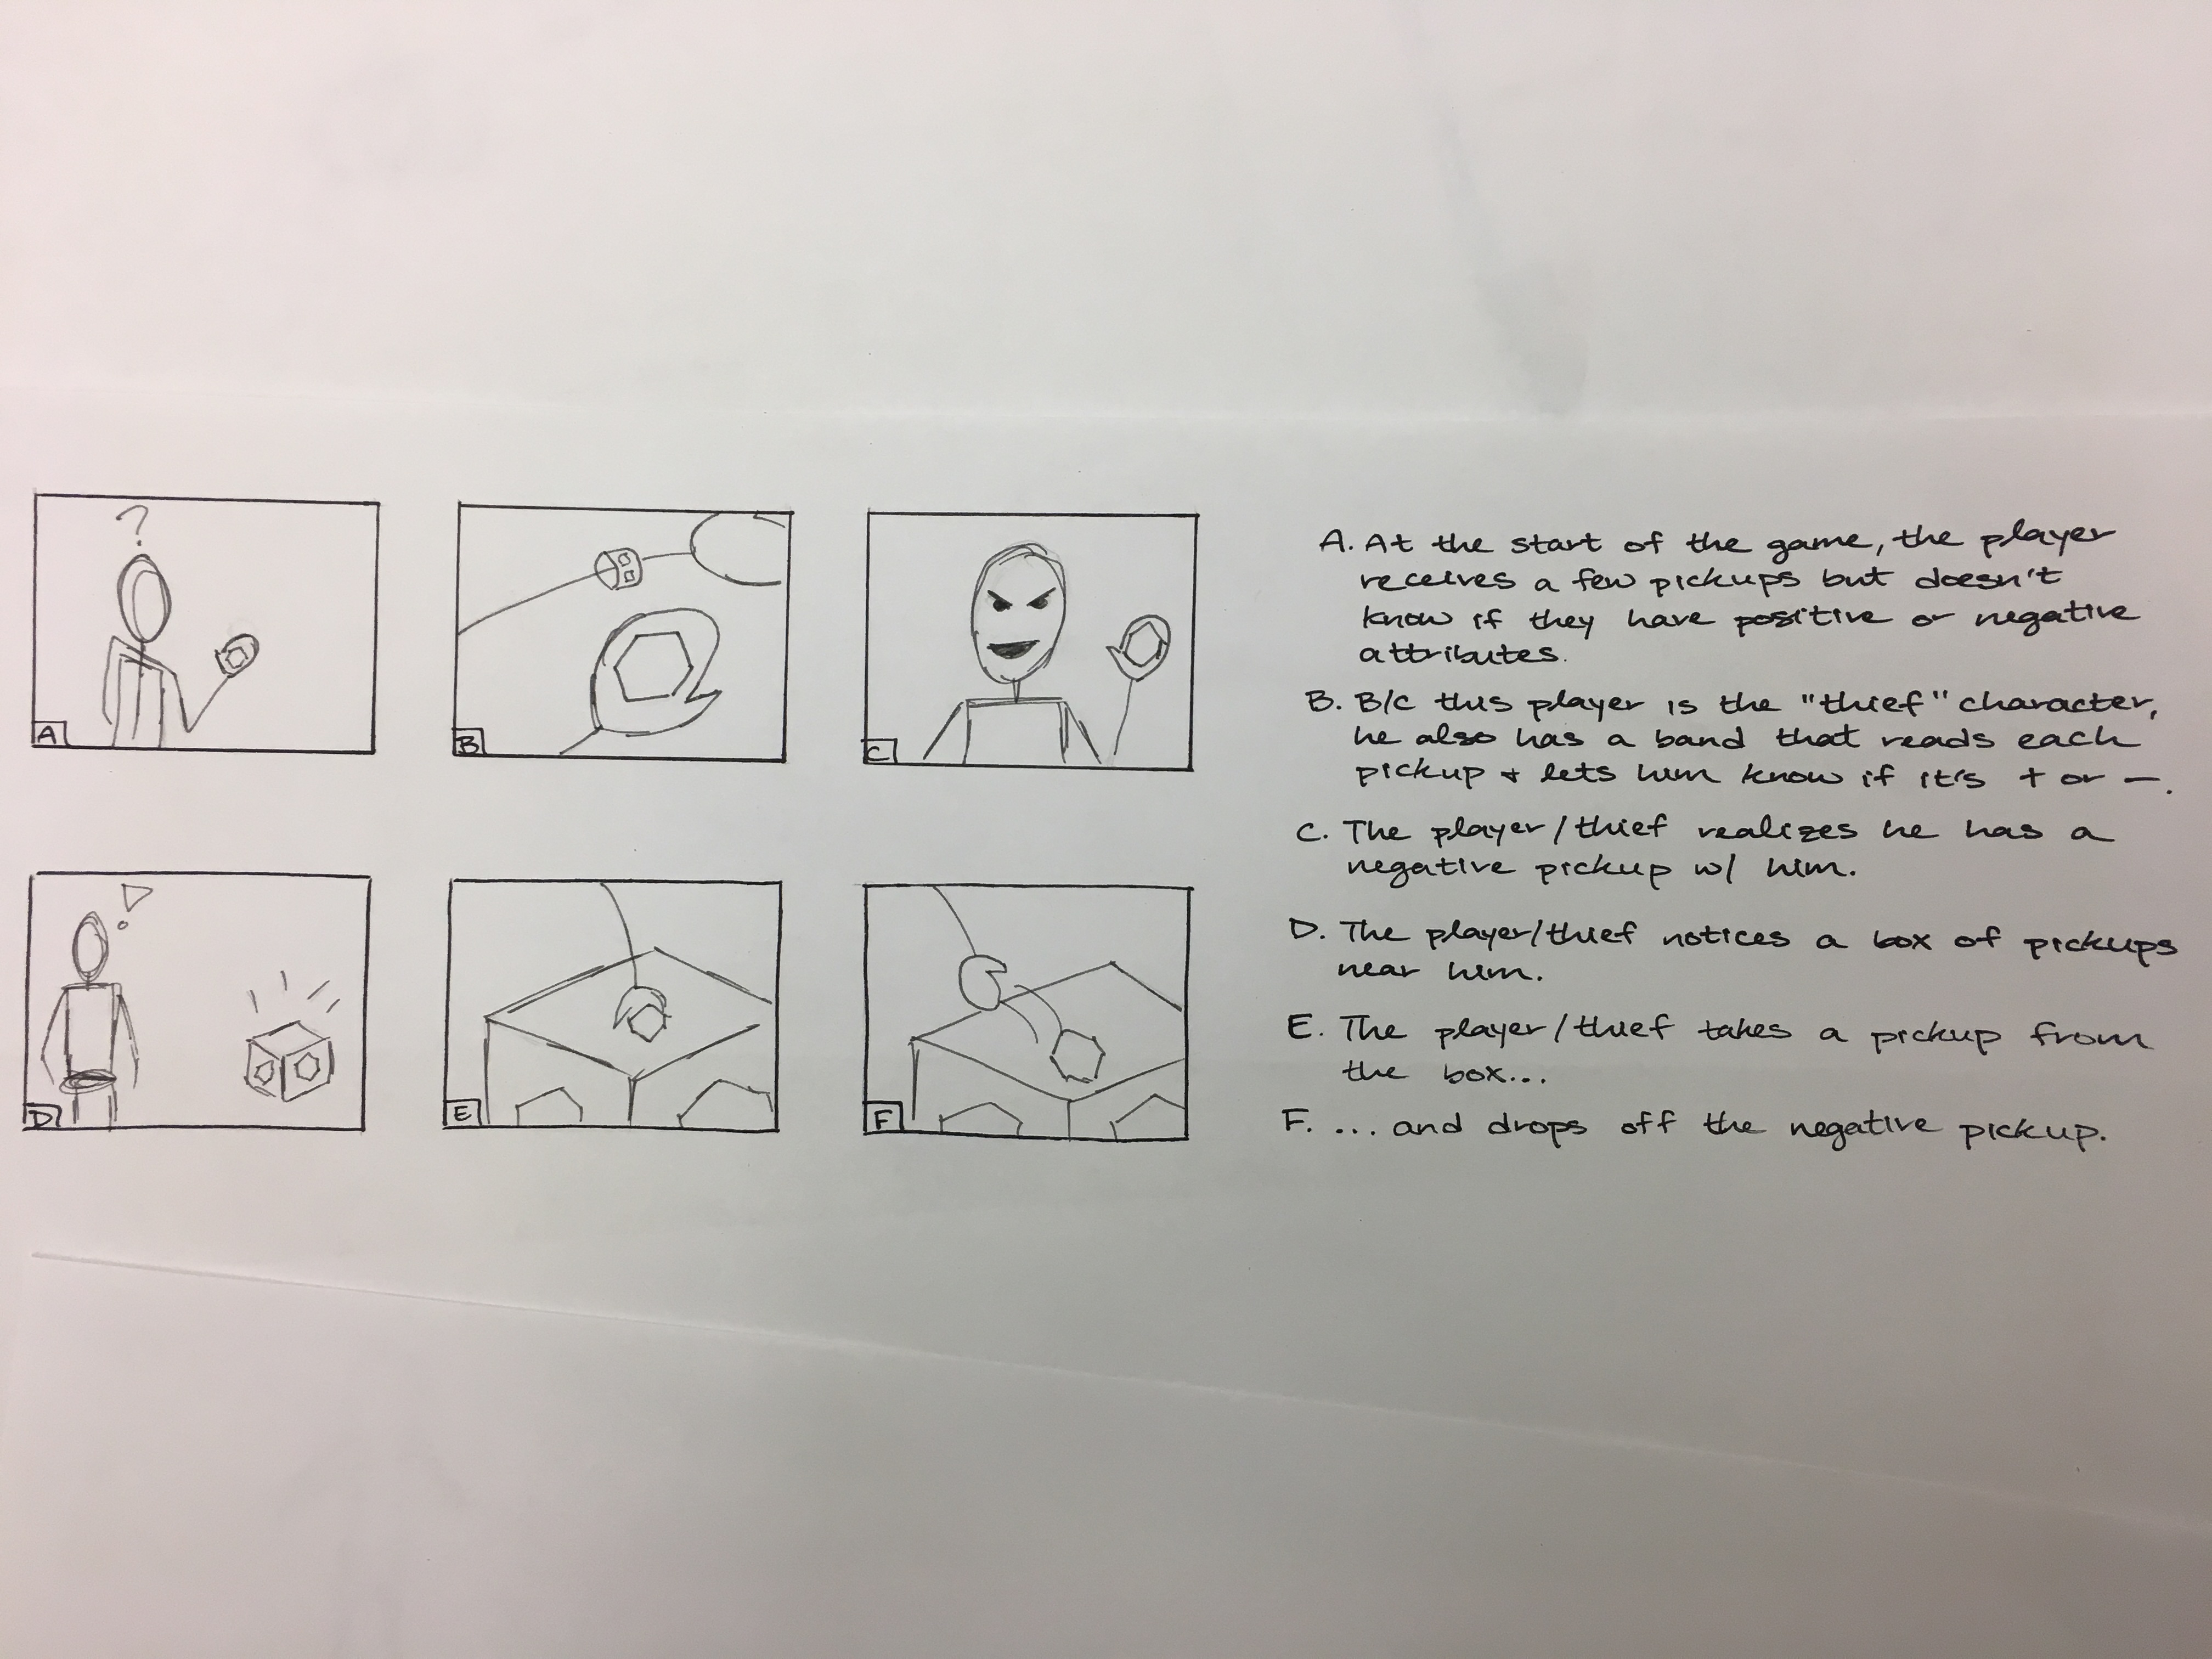 ?
A
B
C
!
D
E
F
A. At the start of the game, the player
receives a few pickups but doesn't
know if they have positive or negative
attributes.
B. B/c this player is the "thief" character,
he also has a band that reads each
pickup + lets him know if it's + or –.
C. The player/thief realizes he has a
negative pickup w/ him.
D. The player/thief notices a box of pickups
near him.
E. The player/thief takes a pickup from
the box...
F. ... and drops off the negative pickup.